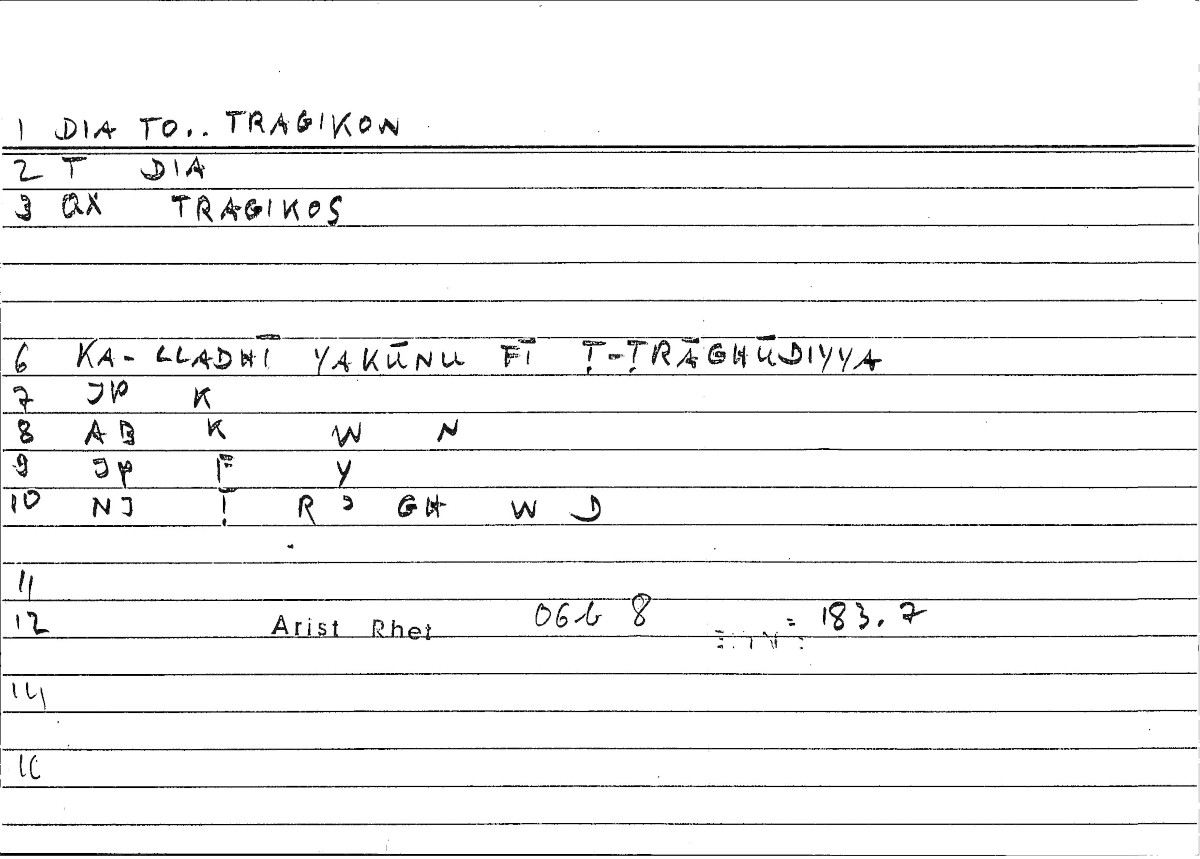 1 DIA TO.. TRAGIKON
2 T DIA
3 QX TRAGIKOS
6 KA-LLADHĪ YAKŪNU FĪ Ṭ-ṬRĀGHŪDIYYA
7 JP K
8 AB K W N
9 JP F Y
10 NJ Ṭ R ʾ GH W D
11
12 Arist Rhet 06b 8 = 183.7
14